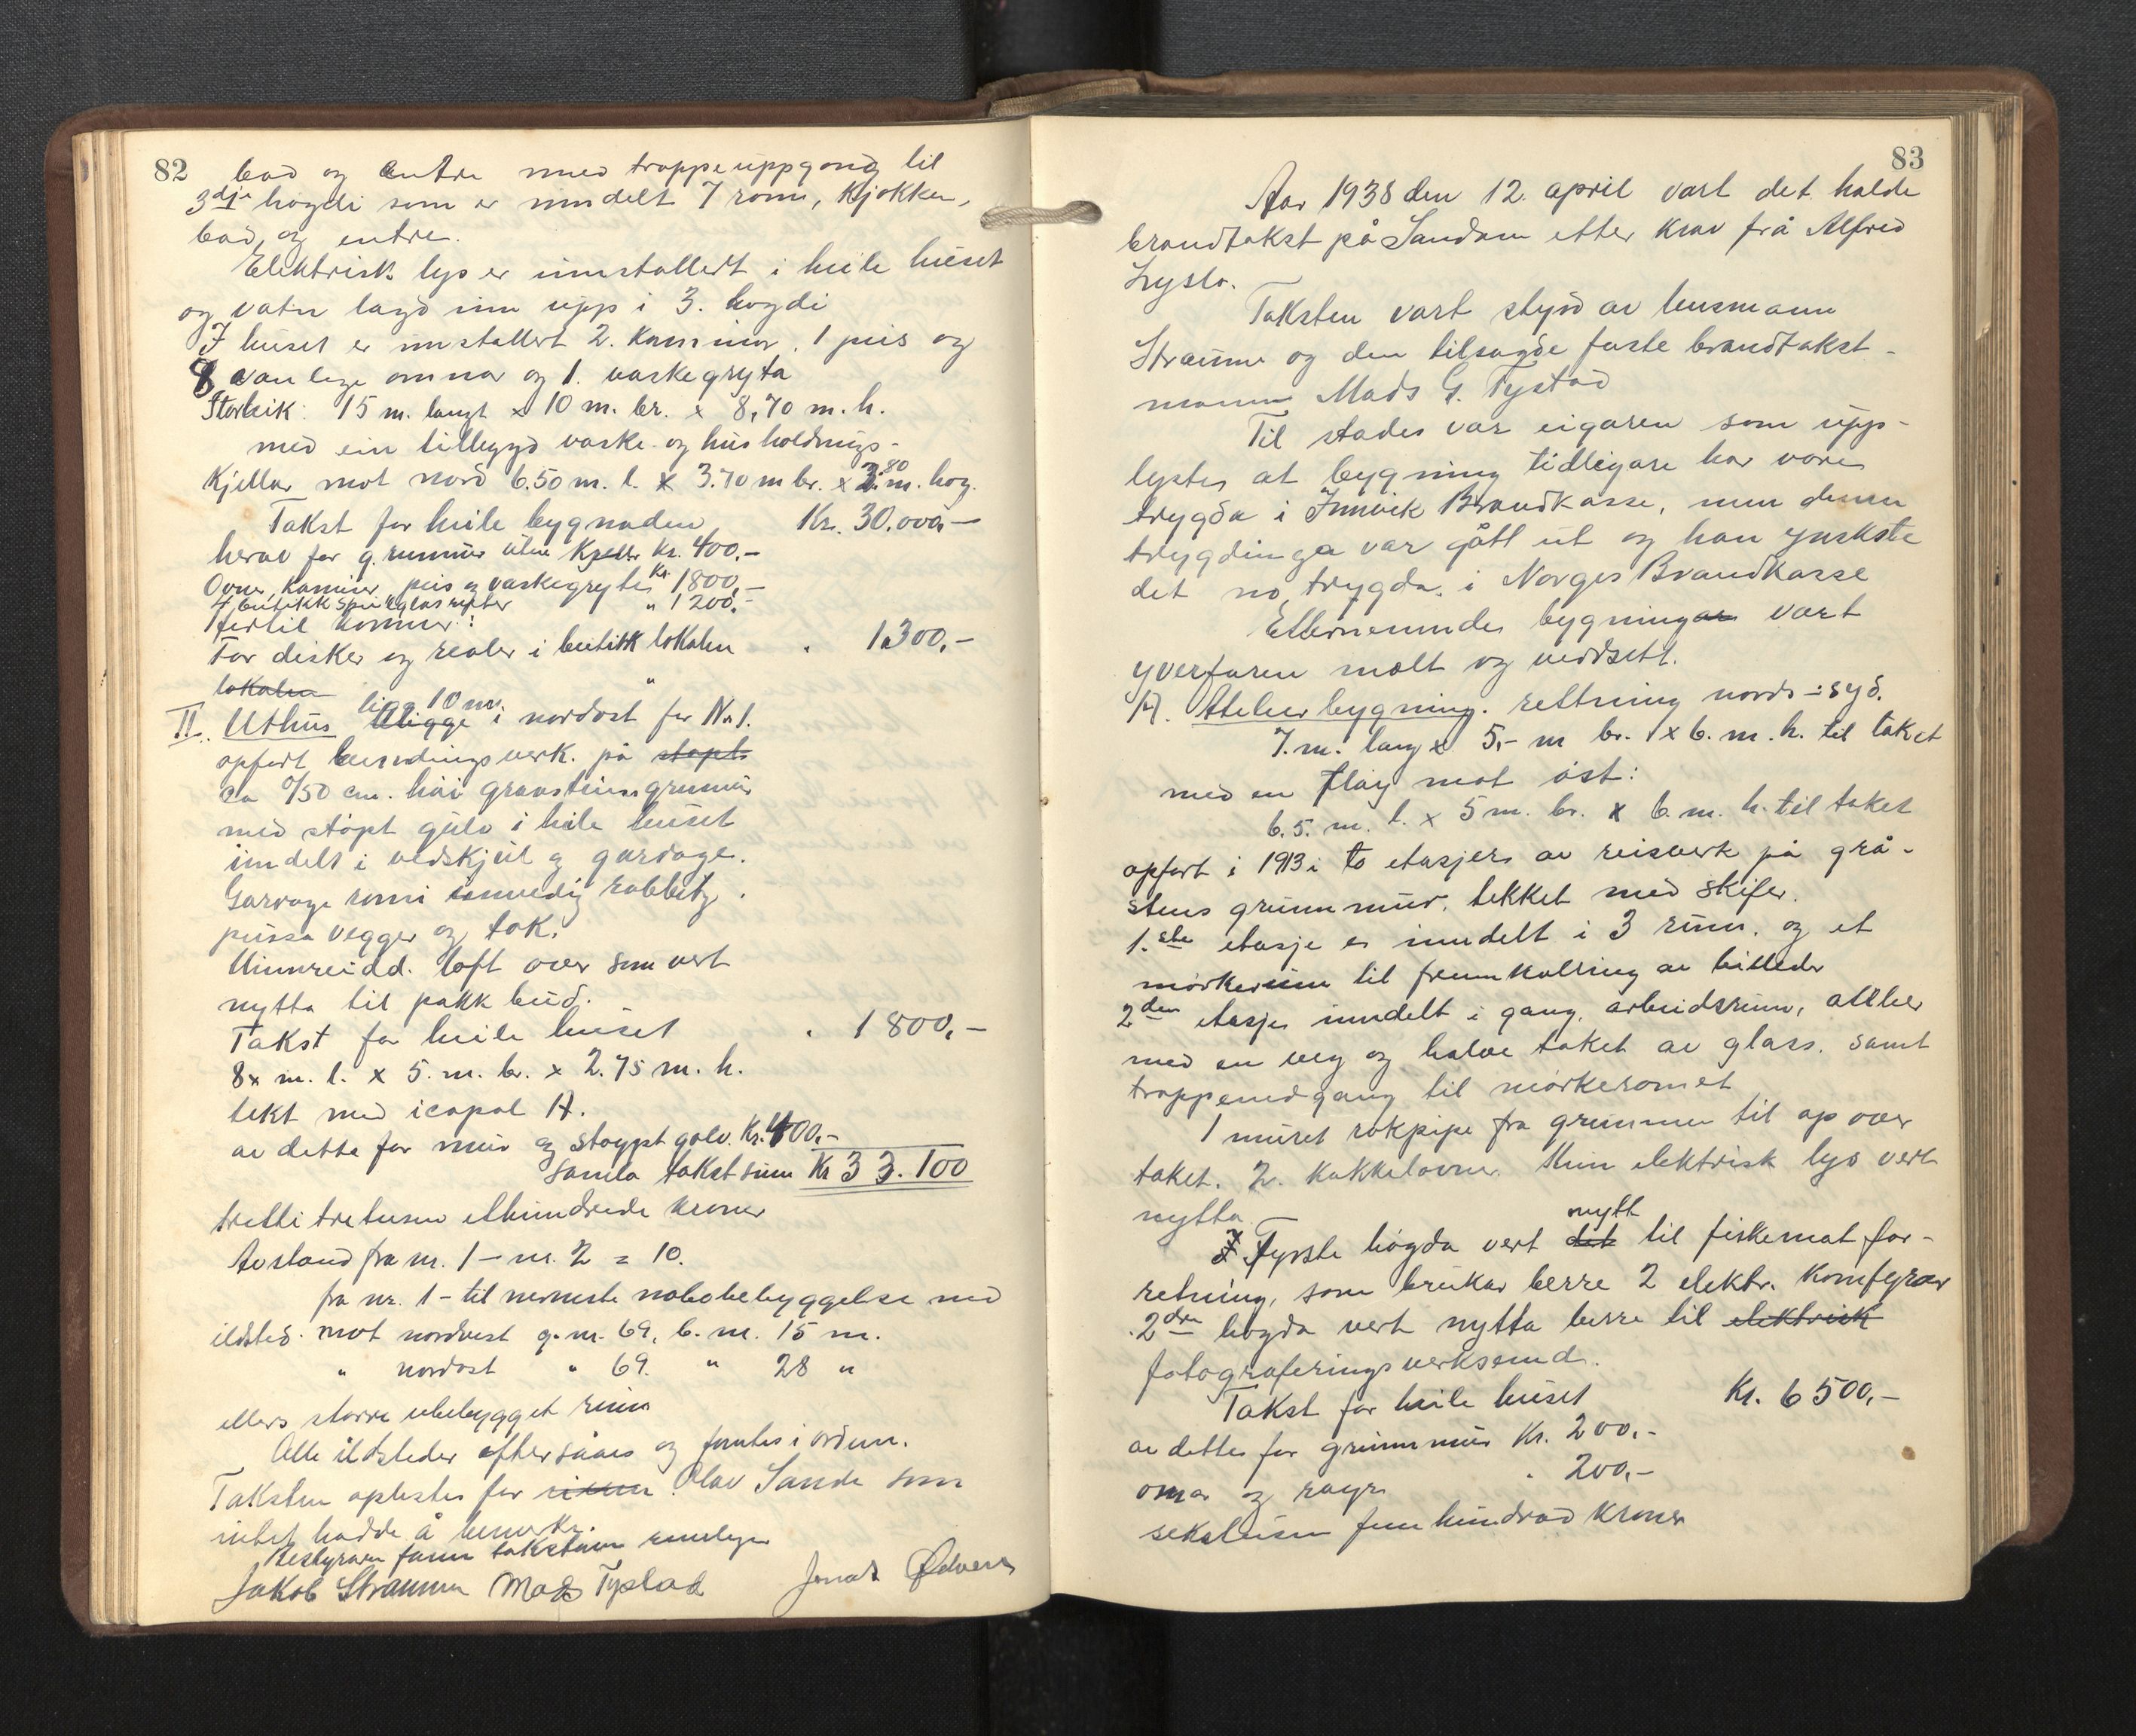 82
bad og entre med trappeuppgong til
3dje høgdi som er inndelt 7 rom, kjøkken,
bad, og entre.
Elektrisk lys er innstallert i heile huset
og vatn lagd inn upp i 3. høgdi
I huset er innstallert 2. kaminer, 1 peis og
8 vanlege omnar og 1. vaskegryta
Storleik: 15 m. langt x 10 m. br. x 8,70 m. h.
med ein tilbygd vaske og husholdnings-
kjellar mot nord 6.50 m. l. x 3.70 m br. x 2.80 m. høg.
Takst for heile bygnaden Kr. 30.000,-
herav for grunnmur uten kjellr kr. 400.-
Ovner, kaminer, peis og vaskegryte Kr. 1800,-
7 butikk speilglas ruter " 1200,-
Hertil kommer:
For disker og reoler i butikk lokalen " 1300,-
lokalen
II. Uthus ligg 10 m. i nordost for No 1.
opført bindingsverk. på støpt
ca 0/50 cm. høi graasteinsgrunnmur
med støpt gulv i heile huset
inndelt i vedskjul og garage.
Garage rom innvendig rabbitz
pussa vegger og tak.
Uinnreidd. loft over som vert
nytta til pakkbud.
Takst for heile huset " 1800,-
8x m. l. x 5. m. br. x 2.75 m. h.
tekt med icopal A.
av dette for mur og støypt golv. Kr. 400,-
Samla takstsum Kr 33.100
tretti tretusen etthundrede kroner
Avstand fra nr. 1 - nr. 2 = 10.
fra nr. 1 - til nermeste nabobebyggelse med
ildsted. mot nordvest g. nr. 69, b. nr. 15 m.
" nordost " 69. " 28 "
ellers større ubebygget rum
Alle ildsteder eftersåes og fantes i orden.
Taksten oplestes for Olav Sande som
intet hadde å bemerke.
Bestyraren fann takstane rimelege
Jakob Straumn Mads Tystad Jonas Ødven
83
Aar 1938 den 12. april vart det halde
brandtakst på Sandane etter krav frå Alfred
Lyslo.
Taksten vart styrd av lensmann
Straume og den tilsagde faste brandtakst-
mann Mads G. Tystad
Til stades var eigaren som upp-
lyste at bygning tidligare har vore
trygda i Innvik Brandkasse, men denne
trygdinga var gått ut og han ynskste
det no trygda i Norges Brandkasse
Etternemnde bygningar vart
yverfaren mælt og verdsett.
A. Atelier bygning. rettning nord-syd.
7. m. lang x 5,- m br. x 6. m. h. til taket
med en fløy mot øst:
6.5. m. l. x 5 m. br. x 6. m. h. til taket
opført i 1913 i to etasjers av reisverk på grå-
stens grunnmur. tekket med skifer.
1.ste etasje er inndelt i 3 rum. og et
mørkerum til fremkalling av billeder
2den etasje inndelt i gang, arbeidsrum, atelier
med en veg og halve taket av glass. samt
trappenedgang til mørkeromet
1 muret rokpipe fra grunnen til op over
taket. 2. kakkelovner. Kun elektrisk lys vert
nytta
I fyrste høgda vert det nytt til fiskemat for-
retning, som brukar berre 2 elektr. komfyrar
2dre høgda vert nytta berre til elektrisk
fotograferingsverksemd.
Takst for heile huset Kr. 6500,-
av dette for grunnmur Kr. 200.-
omnar og røyr " 200,-
sekstusen fem hundrad kroner